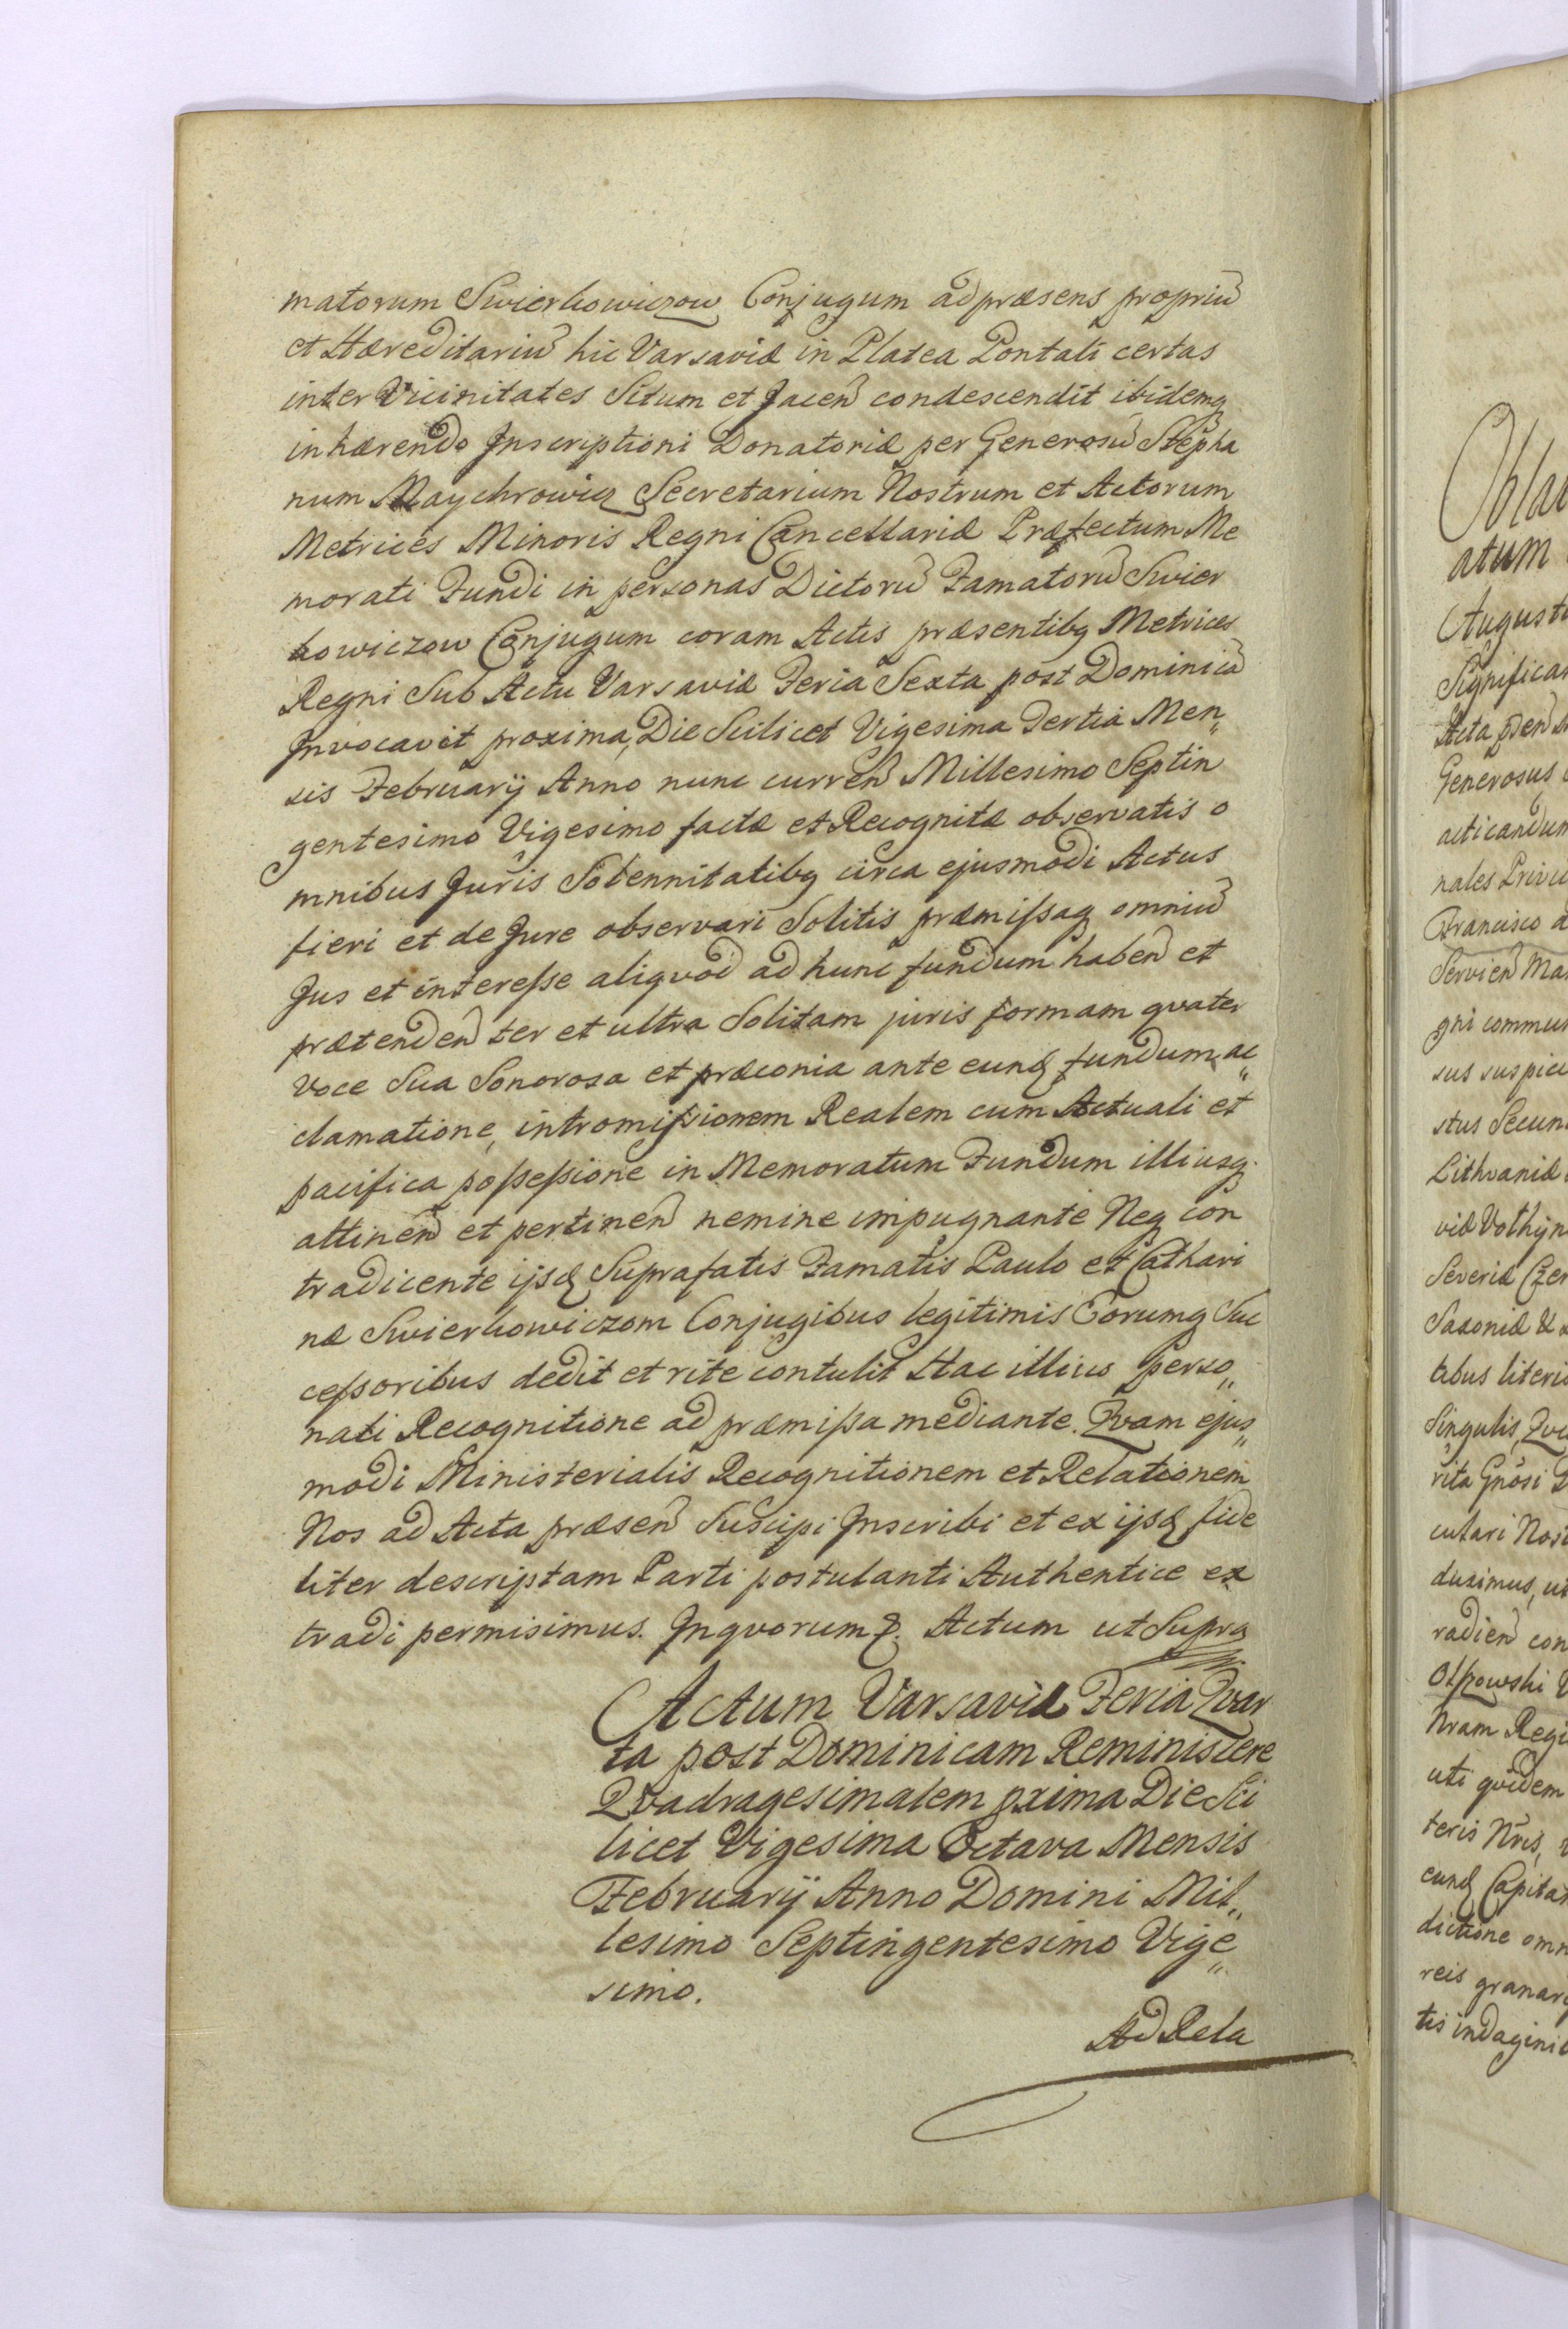 matorum Swierkowiczow Conjugum ad præsens propriū
et Hæreditariū hic Varsaviæ in Platea Pontali certas
inter Vicinitates Situm et Jaceñ condescendit ibidemq
inhærendo Inscriptioni Donatoriæ per Generosū Stepha
num Maychrowicz Secretarium Nostrum et Actorum
Metrices Minoris Regni Cancellariæ Præfectum Me
morati Fundi in personas Dictorū Famatorū Swier
kowiczow Conjugum coram Actis præsentibq Metrices
Regni Sub Actu Varsaviæ Feria Sexta post Dominicā
Invocavit proxima, Die Scilicet Vigesima Tertia Men„
sis February Anno nunc curreñ Millesimo Septin
gentesimo Vigesimo factæ et Recognitæ observatis o
mnibus Juris Solennitatibq circa ejusmodi Actus
fieri et de Jure observari Solitis præmissaq omniū
Jus et interesse aliqvod ad hunc fundum habeñ et
prætendeñ ter et ultra Solitam juris formam qvater
voce Sua Sonorosa et præconia ante eunđ fundum ac„
clamatione, intromissionem Realem cum Actuali et
pacifica possessione in Memoratum Fundum illiusq
attineñ et pertineñ nemine impugnante Neq con
tradicente ijsđ Suprafatis Famatis Paulo et Cathari
næ Swierkowiczom Conjugibus legitimis Eorumq Suc
cessoribus dedit et rite contulit Hac illius Perso„
nati Recognitione ad præmissa mediante. Qvam ejus„
modi Ministerialis Recognitionem et Relationem
Nos ad Acta præseñ Suscipi Inscribi et ex ijsđ fide
liter descriptam Parti postulanti Authentice ex
tradi permisimus. Inqvorum &. Actum ut Supra
Actum Varsaviæ Feria Qvar
ta post Dominicam Reminiscere
Qvadragesimalem pxima Die Sci
licet Vigesima Octava Mensis
Februarij Anno Domini Mil„
lesimo Septingentesimo Vige„
simo.
Ad Rela
atum
Augusti
Significa
Generosus
acticandum
nales Privi
Francisco a
Servieñ Ma
gni commu
sus suspici
stus Secun
Lithvaniæ
viæ Volhyn
Severiæ Czer
Saxoniæ &
tibus literis
Singulis, Qvi
rita Gñosi
culari Nos
duximus, ut
radieñ con
Olszowski
Nram Regi
uti qvidem
teris Nris,
eunđ Capita
dictione omn
reis granar
tis indagini